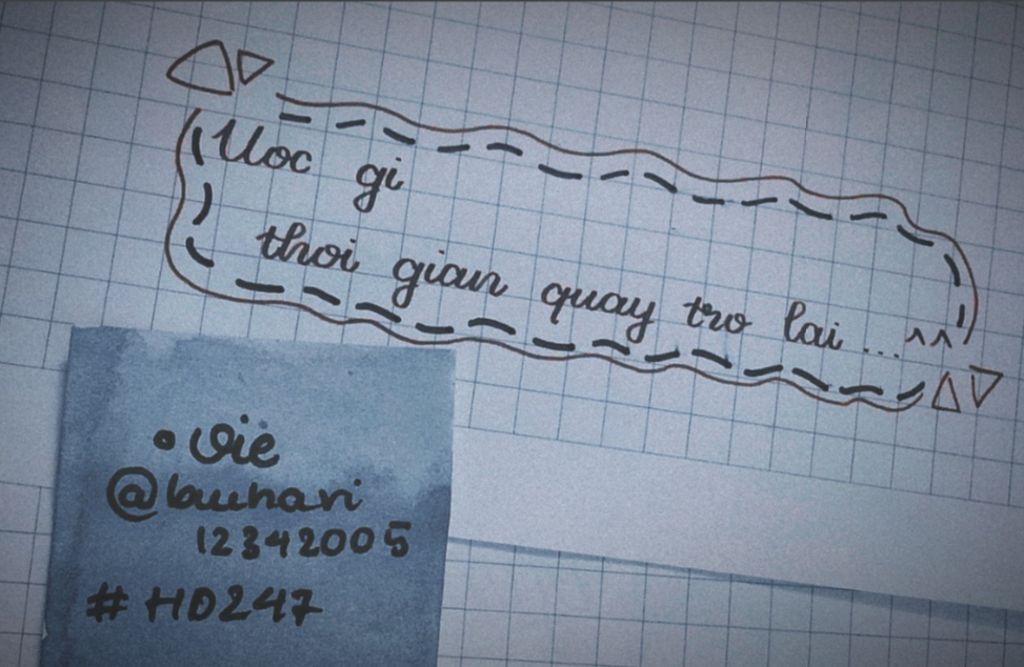 Uoc gi
thoi gian quay tro lai ... ^^
• Vie
@buunavi
12342005
# HD247